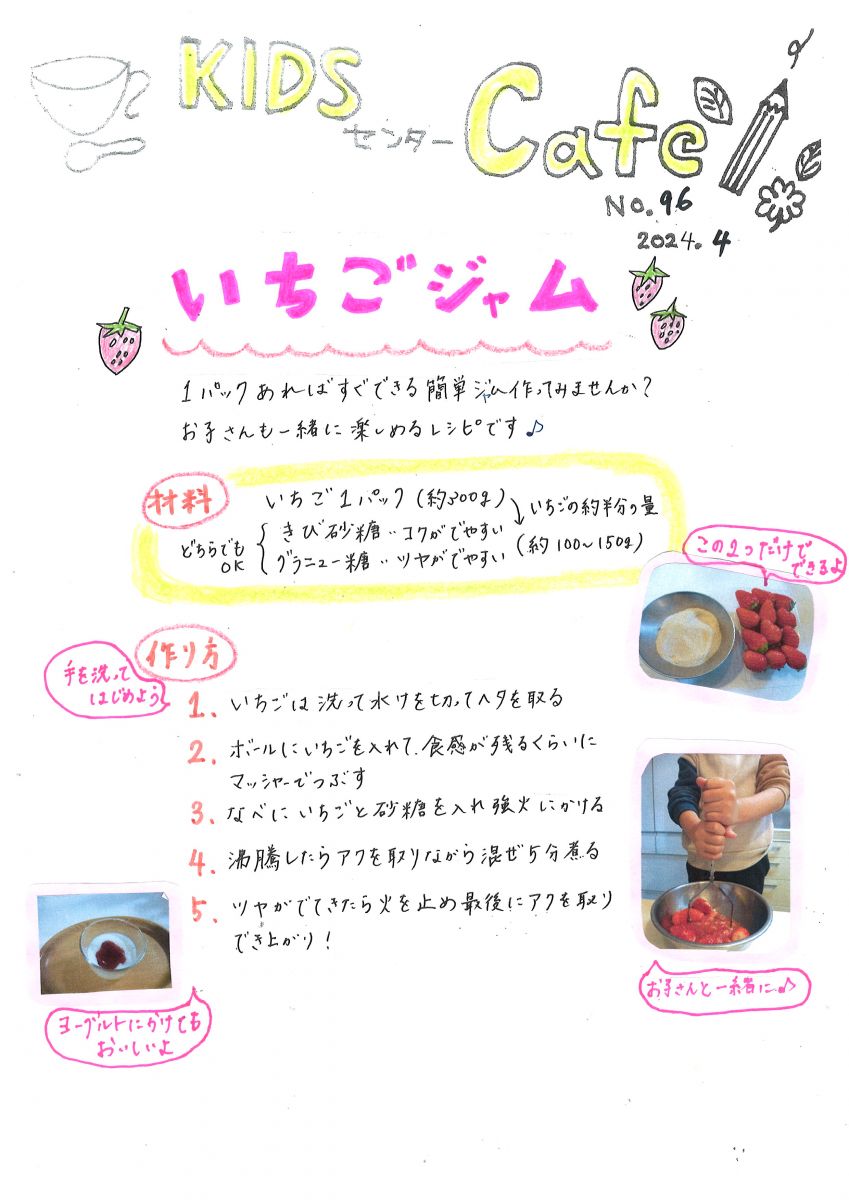 KIDS
センター Cafe
No.96
2024.4
いちごジャム
1パックあればすぐできる簡単ジャム作ってみませんか?
お子さんも一緒に楽しめるレシピです♪
材料
いちご1パック(約300g)
いちごの約半分の量
どちらでも
OK
きび砂糖‥コクがでやすい
グラニュー糖‥ツヤがでやすい
(約100~150g)
この2つだけで
できるよ
作り方
手を洗って
はじめよう
1. いちごは洗って水けを切ってヘタを取る
2. ボールにいちごを入れて、食感が残るくらいに
マッシャーでつぶす
3. なべにいちごと砂糖を入れ強火にかける
4. 沸騰したらアクを取りながら混ぜ5分煮る
5. ツヤがでてきたら火を止め最後にアクを取り
でき上がり!
お子さんと一緒に♪
ヨーグルトにかけても
おいしいよ